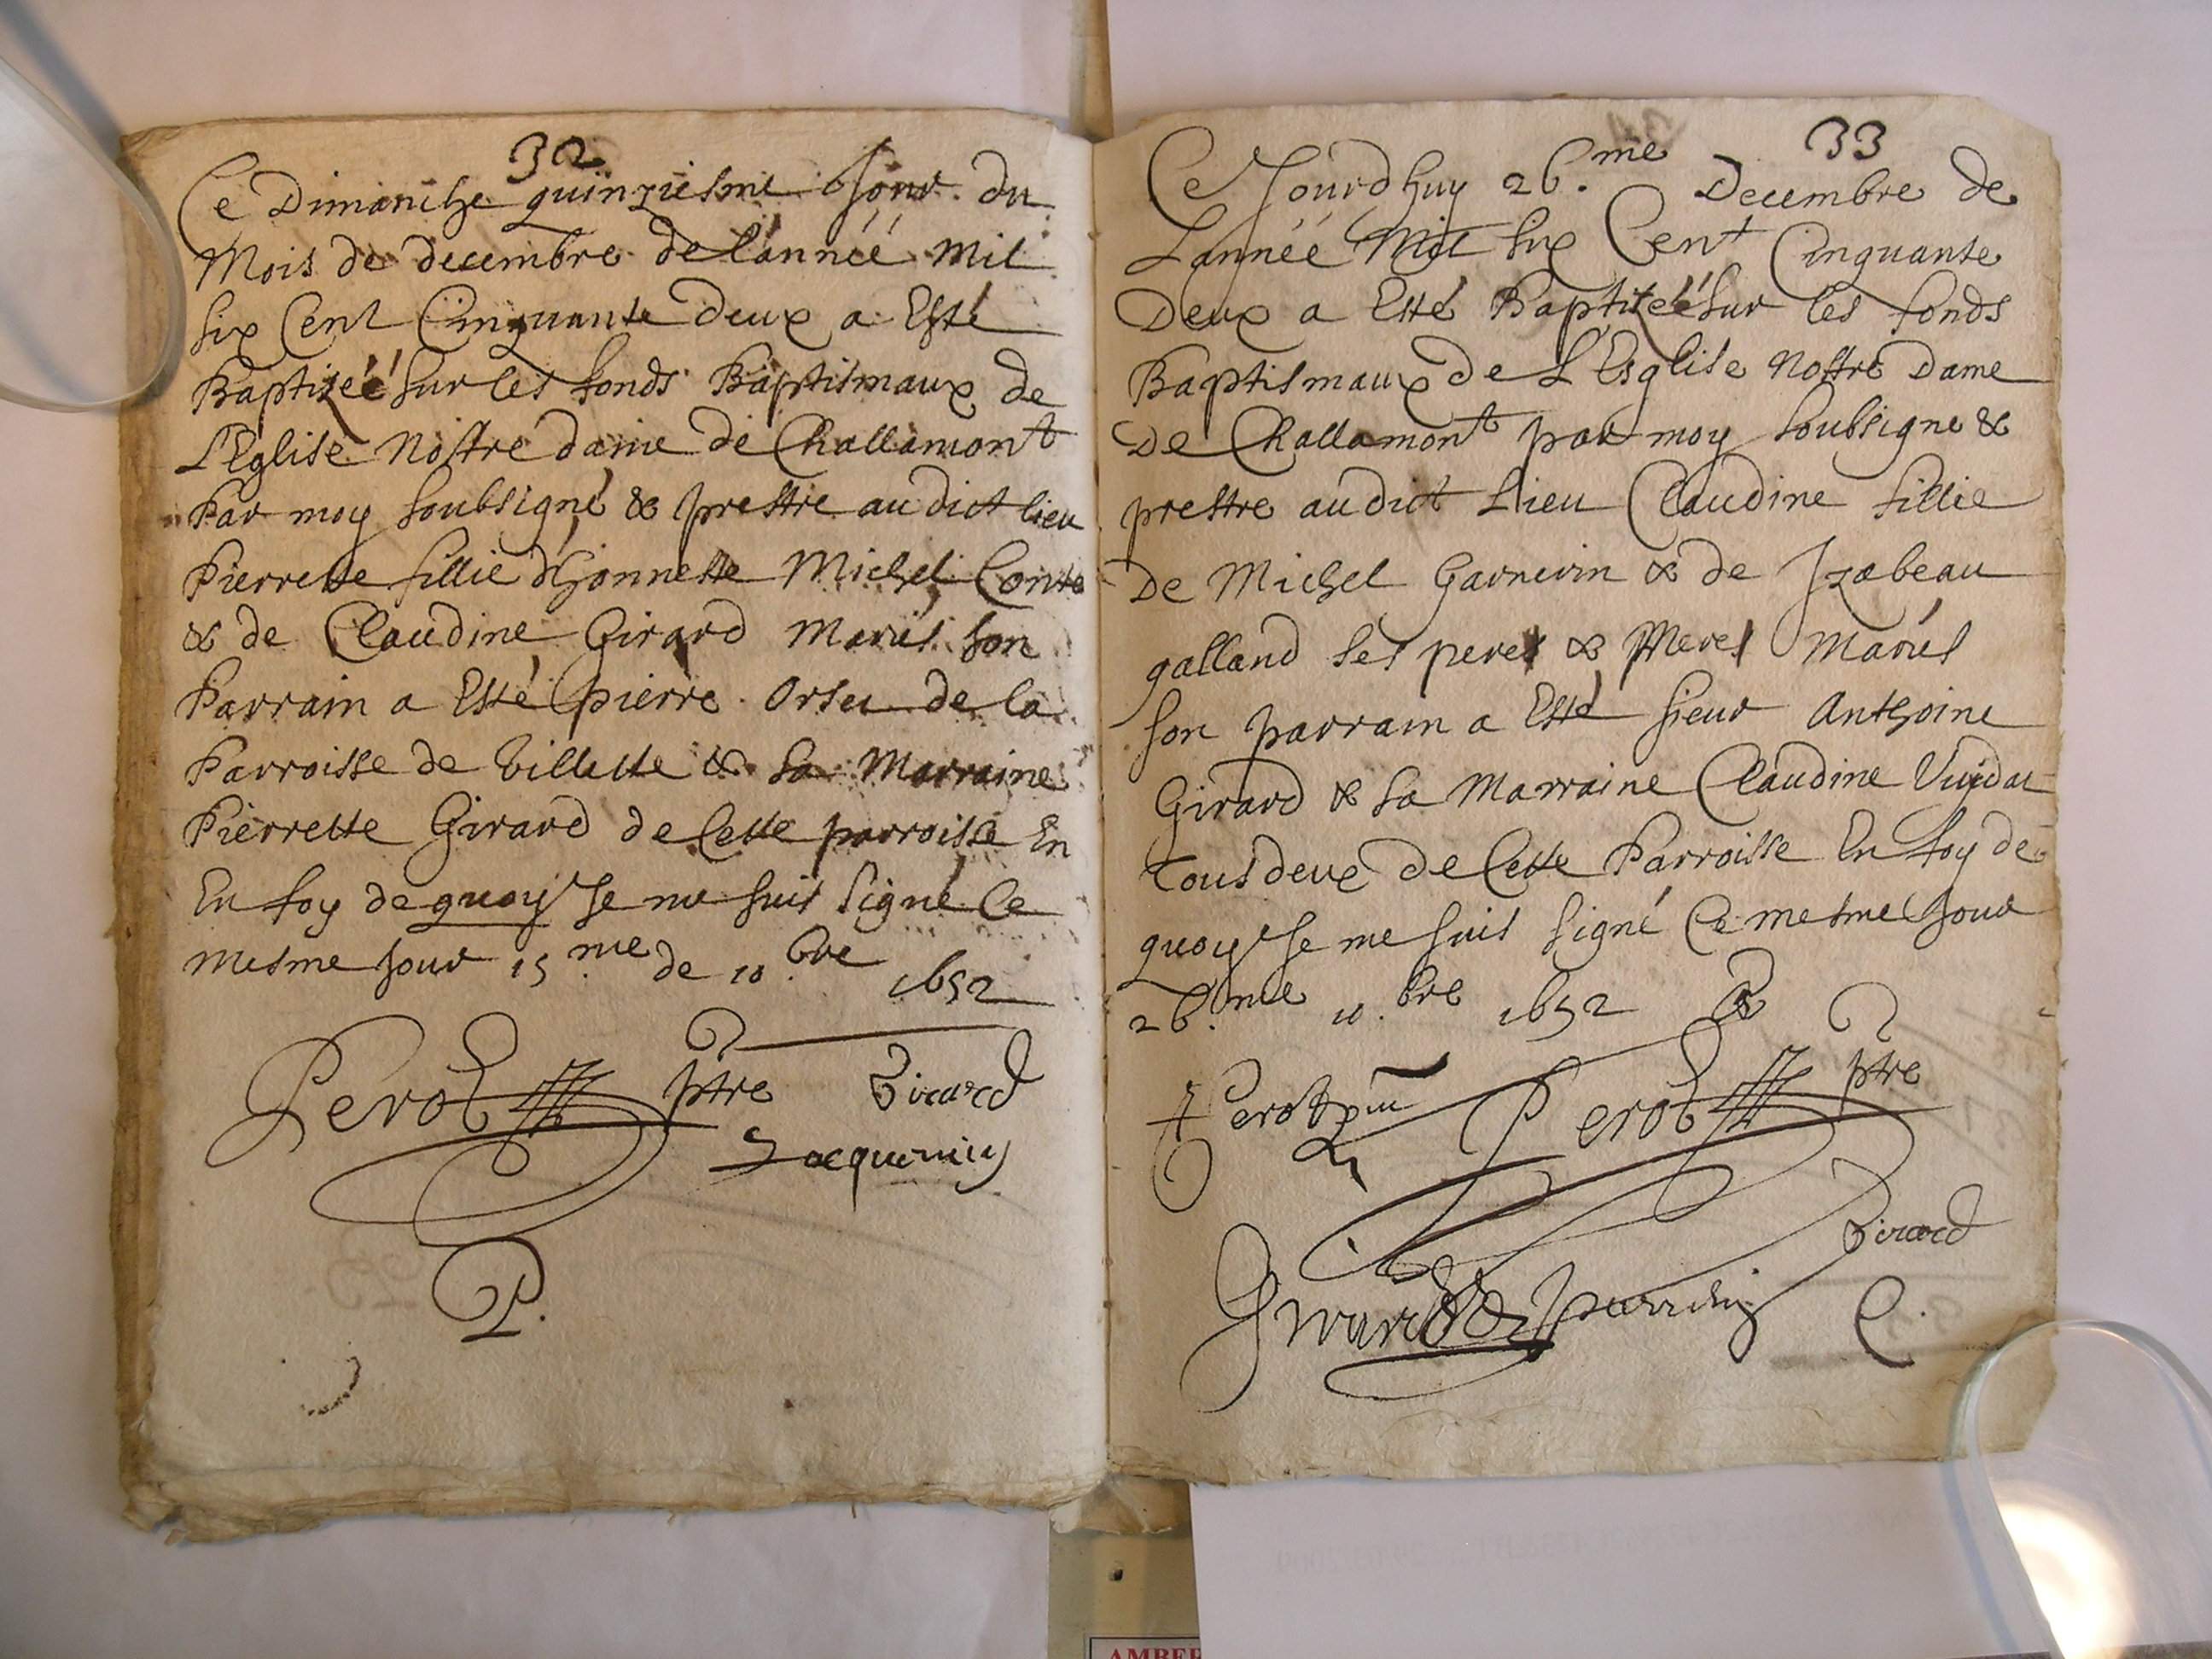 32
Ce Dimanche quinziesme Jour du
Mois de decembre de l'année Mil
six Cent Cinquante deux a Esté
Baptizéé sur les fonds Baptismaux de
L'Eglise Nostre dame de Challamont
Par moy soubsigné & prestre au dict lieu
Pierrette fillie d'honneste Michel Conte
& de Claudine Girard Mariés son
Parrain a Esté pierre Orset de la
Parroisse de Villette & sa Marraine
Pierrette Girard de Cette parroisse En
En foy de quoy Je me suis signé Ce
mesme Jour 15.me de 10.bre 1652
Perot ptre Girard
Jacquemin
P.
33
Ce Jourdhuy 26.me Decembre de
L'année Mil six Cent Cinquante
Deux a Esté Baptizéé sur les fonds
Baptismaux de L'Esglise Nostre Dame
De Challamont par moy soubsigne &
prestre au dict Lieu Claudine fillie
De Michel Garnerin & de Izabeau
galland ses peres & Meres Mariés
son parrain a Esté sieur Anthoine
Girard & sa Marraine Claudine
Tous deux de Cette Parroisse En foy de
quoy Je me suis signé Ce mesme Jour
26.me 10.bre 1652
Perot Perot ptre
Girard
Girard